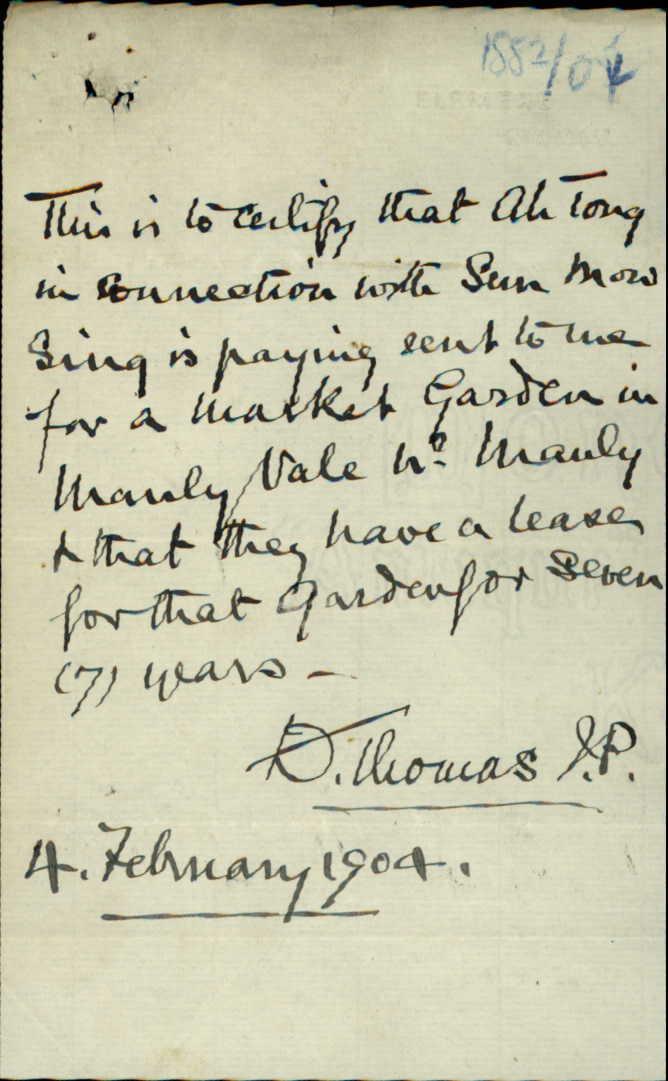 1882/04
This is to certify that Ah Tong
in connection with Sun Mow
Sing is paying rent to me
for a Market Garden in
Manly Vale nr. Manly
& that they have a lease
for that Garden for Seven
(7) years –
D. Thomas J.P.
4. February 1904.